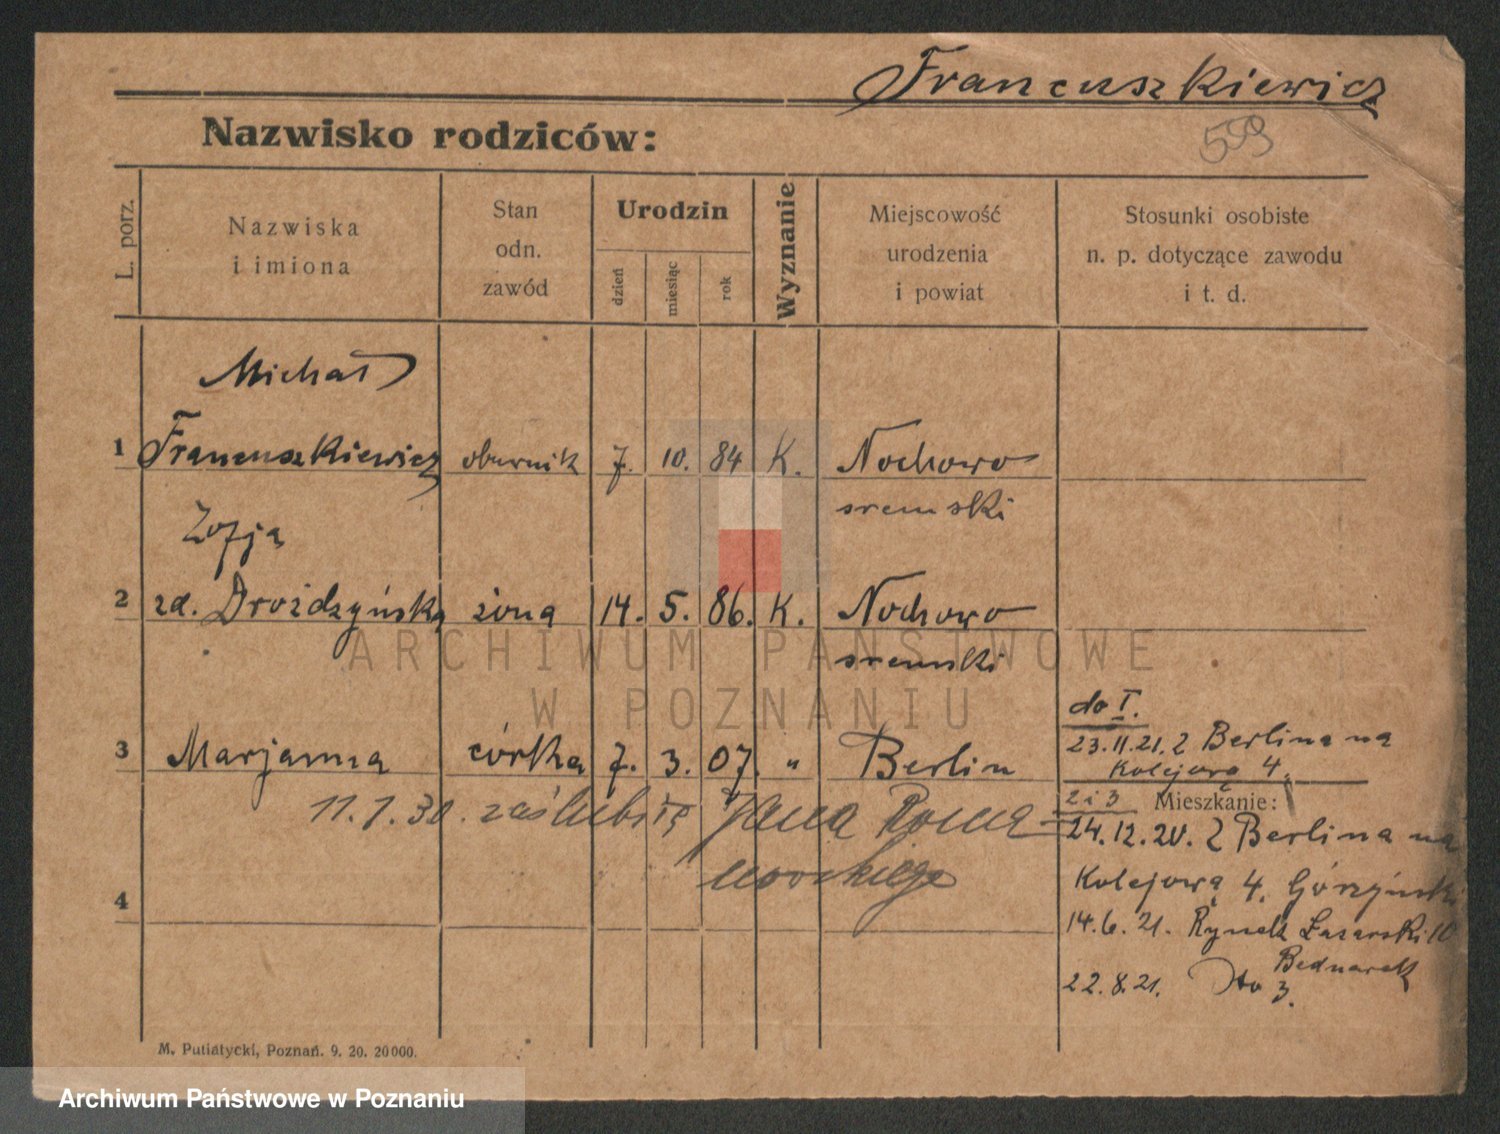 Francuszkiewicz
Nazwisko rodziców:
559
L. porz.
Nazwiska
i imiona
Stan
odn.
zawód
Urodzin
dzień
miesiąc
rok
Wyznanie
Miejscowość
urodzenia
i powiat
Stosunki osobiste
n. p. dotyczące zawodu
i t. d.
Michał
1 Francuszkiewicz obuwnik 7. 10. 84 K. Nochowo
sremski
Zofja
2 zd. Drożdzyńska żona 14. 5. 86. K. Nochowo
sremski
do I.
23.11.21. z Berlina na
Kolejową 4.
3 Marjanna córka 7. 3. 07. " Berlin
2 i 3 Mieszkanie:
11.1.30. zaślubiła Jana
24.12.20. z Berlina na
Kolejową 4. Górzyński
4
14.6.21. Rynek Łazarski 10
Bednarek
22.8.21. Tto 3.
ARCHIWUM PAŃSTWOWE
W POZNANIU
M. Putiatycki, Poznań. 9. 20. 20000.
Archiwum Państwowe w Poznaniu